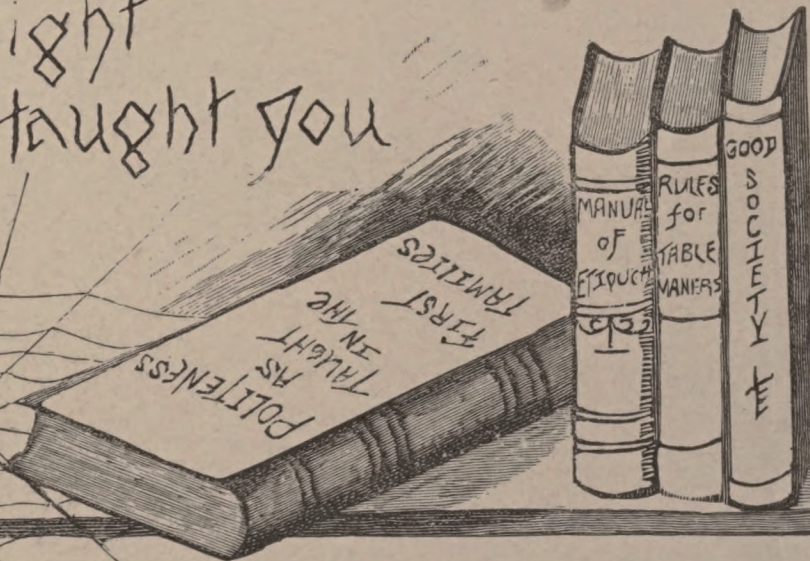 ight
taught you
POLITENESS
AS
TAUGHT
IN THE
FIRST
FAMILIES
MANUAL
OF
RULES
for
TABLE
MANERS
GOOD
SOCIETY